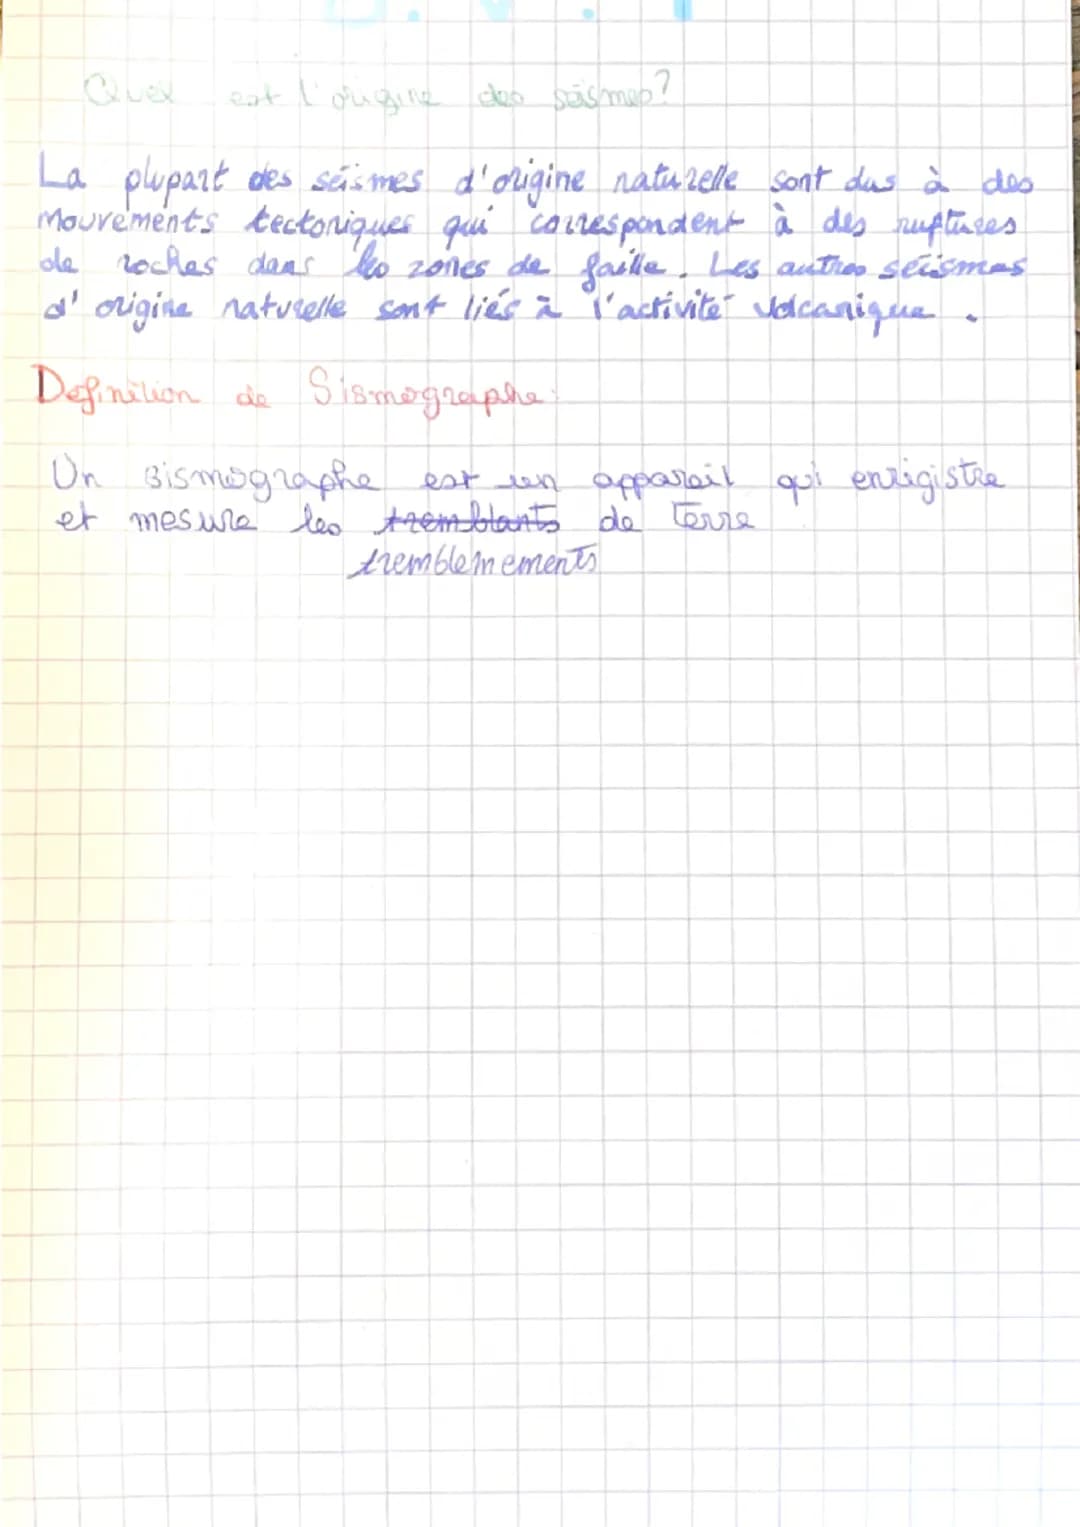 Quel est l'origine des séismes?
La plupart des séismes d'origine naturelle sont dus à des
Mouvements tectoniques qui correspondent à des ruptures
de roches dans les zones de faille. Les autres séismes
d'origine naturelle sont liés à l'activité volcanique.
Definition de Sismographe:
Un sismographe est un appareil qui enrigistre
et mesure les tremblants de Terre
tremblemements